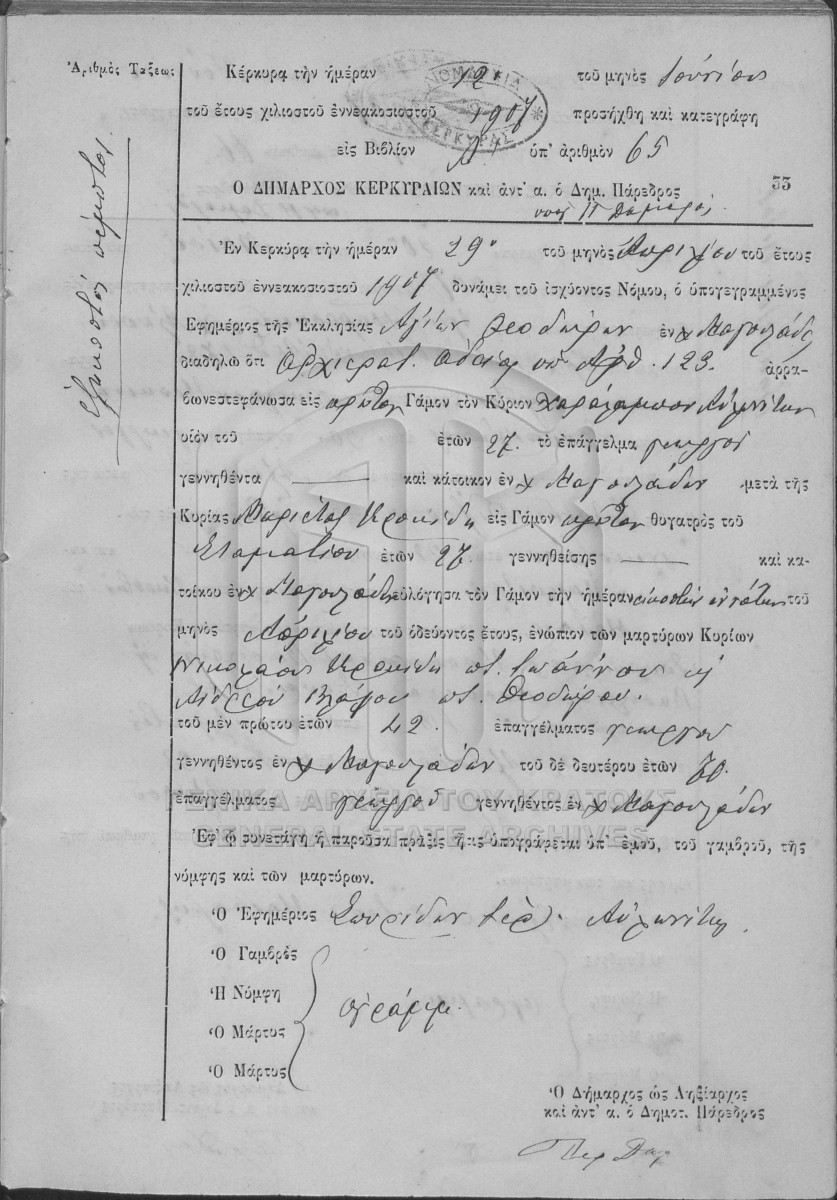 Ἀριθμὸς Τάξεως
Κέρκυρα τὴν ἡμέραν 12 τοῦ μηνὸς Ἰουνίου
τοῦ ἔτους χιλιοστοῦ ἐννεακοσιοστοῦ 1907 προσήχθη καὶ κατεγράφη
εἰς Βιβλίον ὑπ' ἀριθμὸν 65
Ο ΔΗΜΑΡΧΟΣ ΚΕΡΚΥΡΑΙΩΝ καὶ ἀντ' α. ὁ Δημ. Πάρεδρος
33
ἑξηκοστὸς πέμπτος
Ἐν Κερκύρᾳ τὴν ἡμέραν 29 τοῦ μηνὸς Ἀπριλίου τοῦ ἔτους
χιλιοστοῦ ἐννεακοσιοστοῦ 1907 δυνάμει τοῦ ἰσχύοντος Νόμου, ὁ ὑπογεγραμμένος
Ἐφημέριος τῆς Ἐκκλησίας Ἁγίων Θεοδώρων ἐν χ Μαγουλάδες
διαδηλῶ ὅτι ἀρχιερατ. ἀδείᾳ ὑπ' Ἀριθ. 123. ἀρρα-
βωνεστεφάνωσα εἰς πρῶτον Γάμον τὸν Κύριον Χαράλαμπον Αὐλωνίτην
υἱὸν τοῦ ἐτῶν 27. τὸ ἐπάγγελμα γεωργοῦ
γεννηθέντα — καὶ κάτοικον ἐν χ Μαγουλάδων μετὰ τῆς
Κυρίας Κροκίδη εἰς Γάμον πρῶτον θυγατρὸς τοῦ
Σταματίου ἐτῶν 27. γεννηθείσης — καὶ κα-
τοίκου ἐν χ Μαγουλάδων εὐλόγησα τὸν Γάμον τὴν ἡμέραν εἰκοστὴν ἐννάτην τοῦ
μηνὸς Ἀπριλίου τοῦ ὁδεύοντος ἔτους, ἐνώπιον τῶν μαρτύρων Κυρίων
Νικολάου Κροκίδη ποτ. Ἰωάννου κ
Ἀνδρέου Βλάχου ποτ. Θεοδώρου.
τοῦ μὲν πρώτου ἐτῶν 42. ἐπαγγέλματος γεωργοῦ
γεννηθέντος ἐν χ Μαγουλάδων τοῦ δὲ δευτέρου ἐτῶν 70.
ἐπαγγέλματος γεωργοῦ γεννηθέντος ἐν χ Μαγουλάδων
ΓΕΝΙΚΑ ΑΡΧΕΙΑ ΤΟΥ ΚΡΑΤΟΥΣ
GENERAL STATE ARCHIVES
Ἐφ' ᾧ συνετάγη ἡ παροῦσα πρᾶξις ἥτις ὑπογράφεται ὑπ' ἐμοῦ, τοῦ γαμβροῦ, τῆς
νύμφης καὶ τῶν μαρτύρων.
Ὁ Ἐφημέριος Σπυρίδων ἱερ. Αὐλωνίτης
Ὁ Γαμβρὸς
Ἡ Νύμφη
ἀγράμμ.
Ὁ Μάρτυς
Ὁ Μάρτυς
Ὁ Δήμαρχος ὡς Ληξίαρχος
καὶ ἀντ' α. ὁ Δημοτ. Πάρεδρος